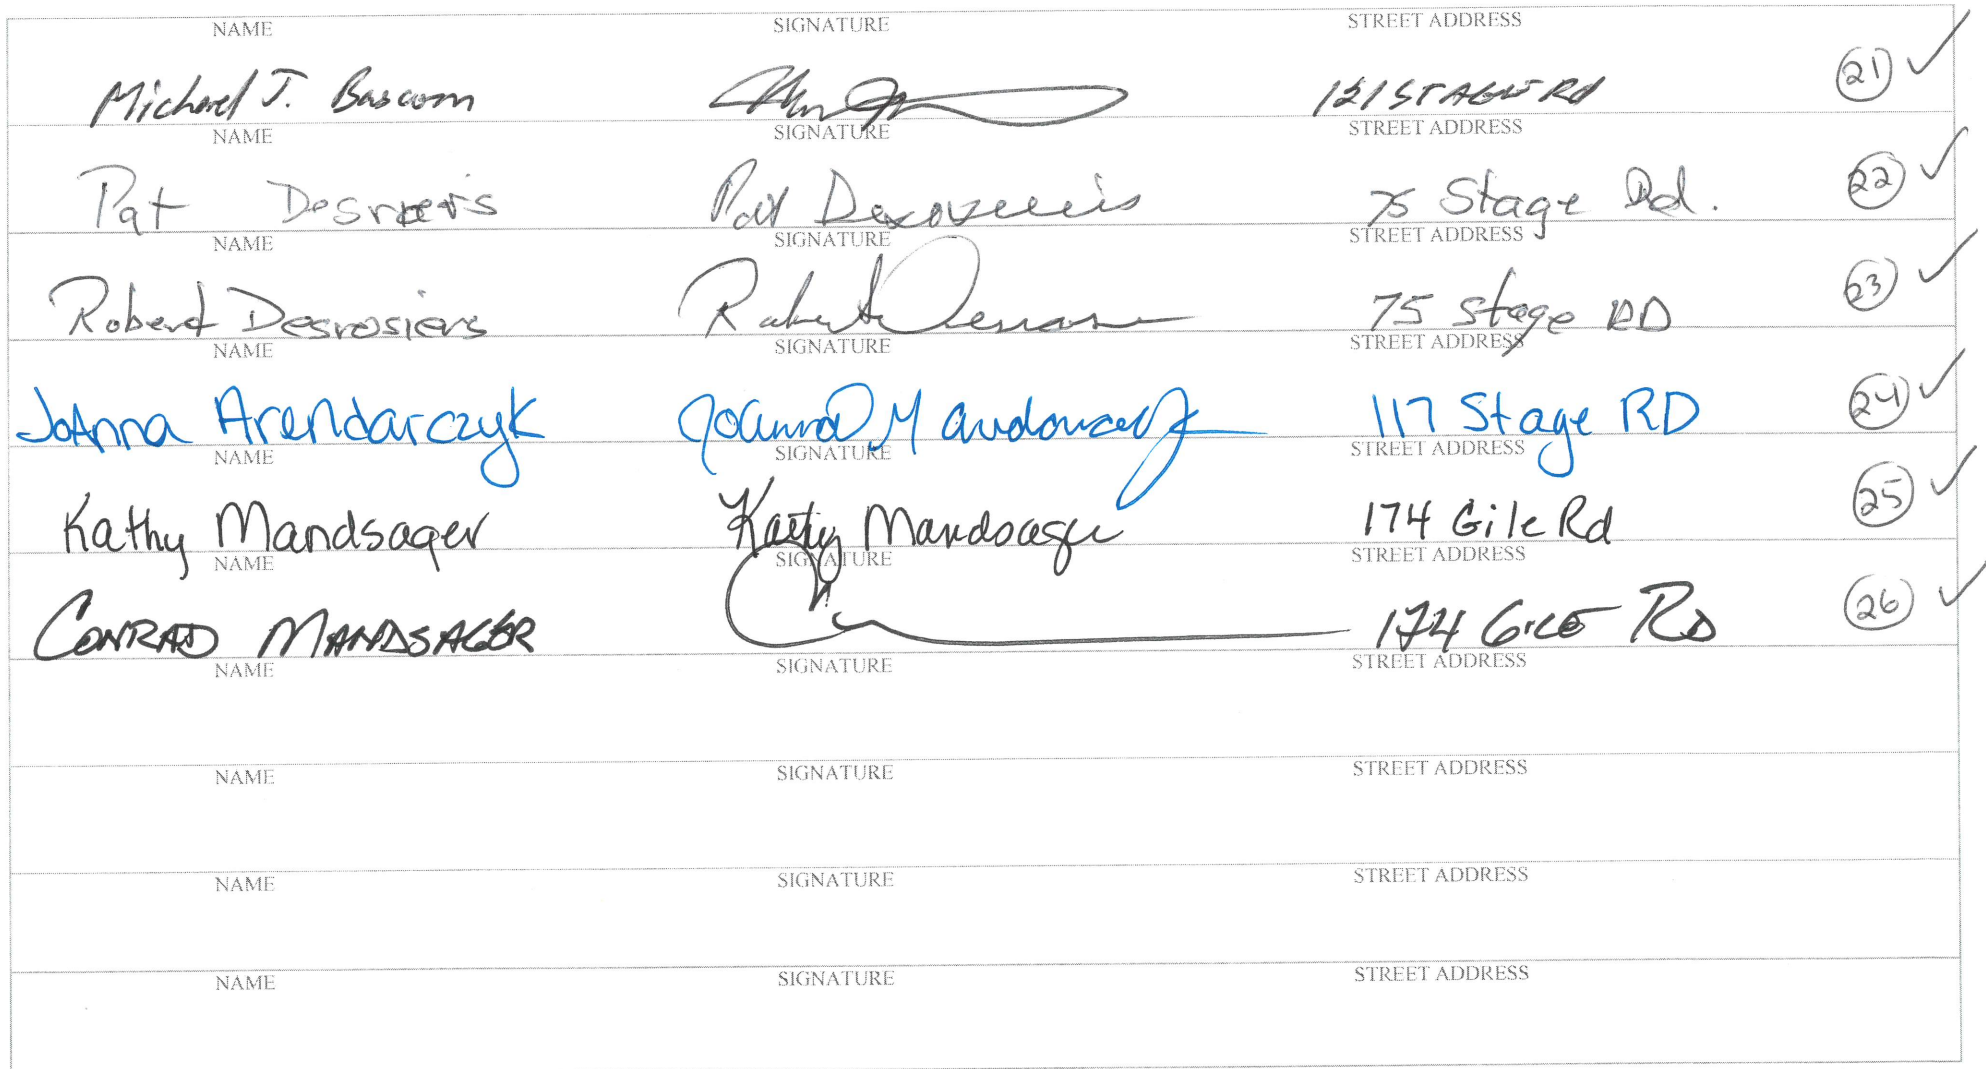 NAME SIGNATURE STREET ADDRESS
Michael J. Bascom 121 STAGE Rd 21 ✓
NAME SIGNATURE STREET ADDRESS
Pat Pat 75 Stage Rd. 22 ✓
NAME SIGNATURE STREET ADDRESS
Robert Desrosiers Robert 75 Stage RD 23 ✓
NAME SIGNATURE STREET ADDRESS
JoAnna Arendarczyk JoAnna M 117 Stage RD 24 ✓
NAME SIGNATURE STREET ADDRESS
Kathy Mandsager Kathy Mandsager 174 Gile Rd 25 ✓
NAME SIGNATURE STREET ADDRESS
CONRAD MANDSAGER 174 GILE RD 26 ✓
NAME SIGNATURE STREET ADDRESS
NAME SIGNATURE STREET ADDRESS
NAME SIGNATURE STREET ADDRESS
NAME SIGNATURE STREET ADDRESS